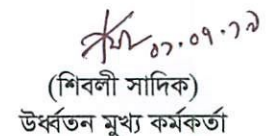 ০১.০৭.১৯
(শিবলী সাদিক)
উর্ধ্বতন মুখ্য কর্মকর্তা